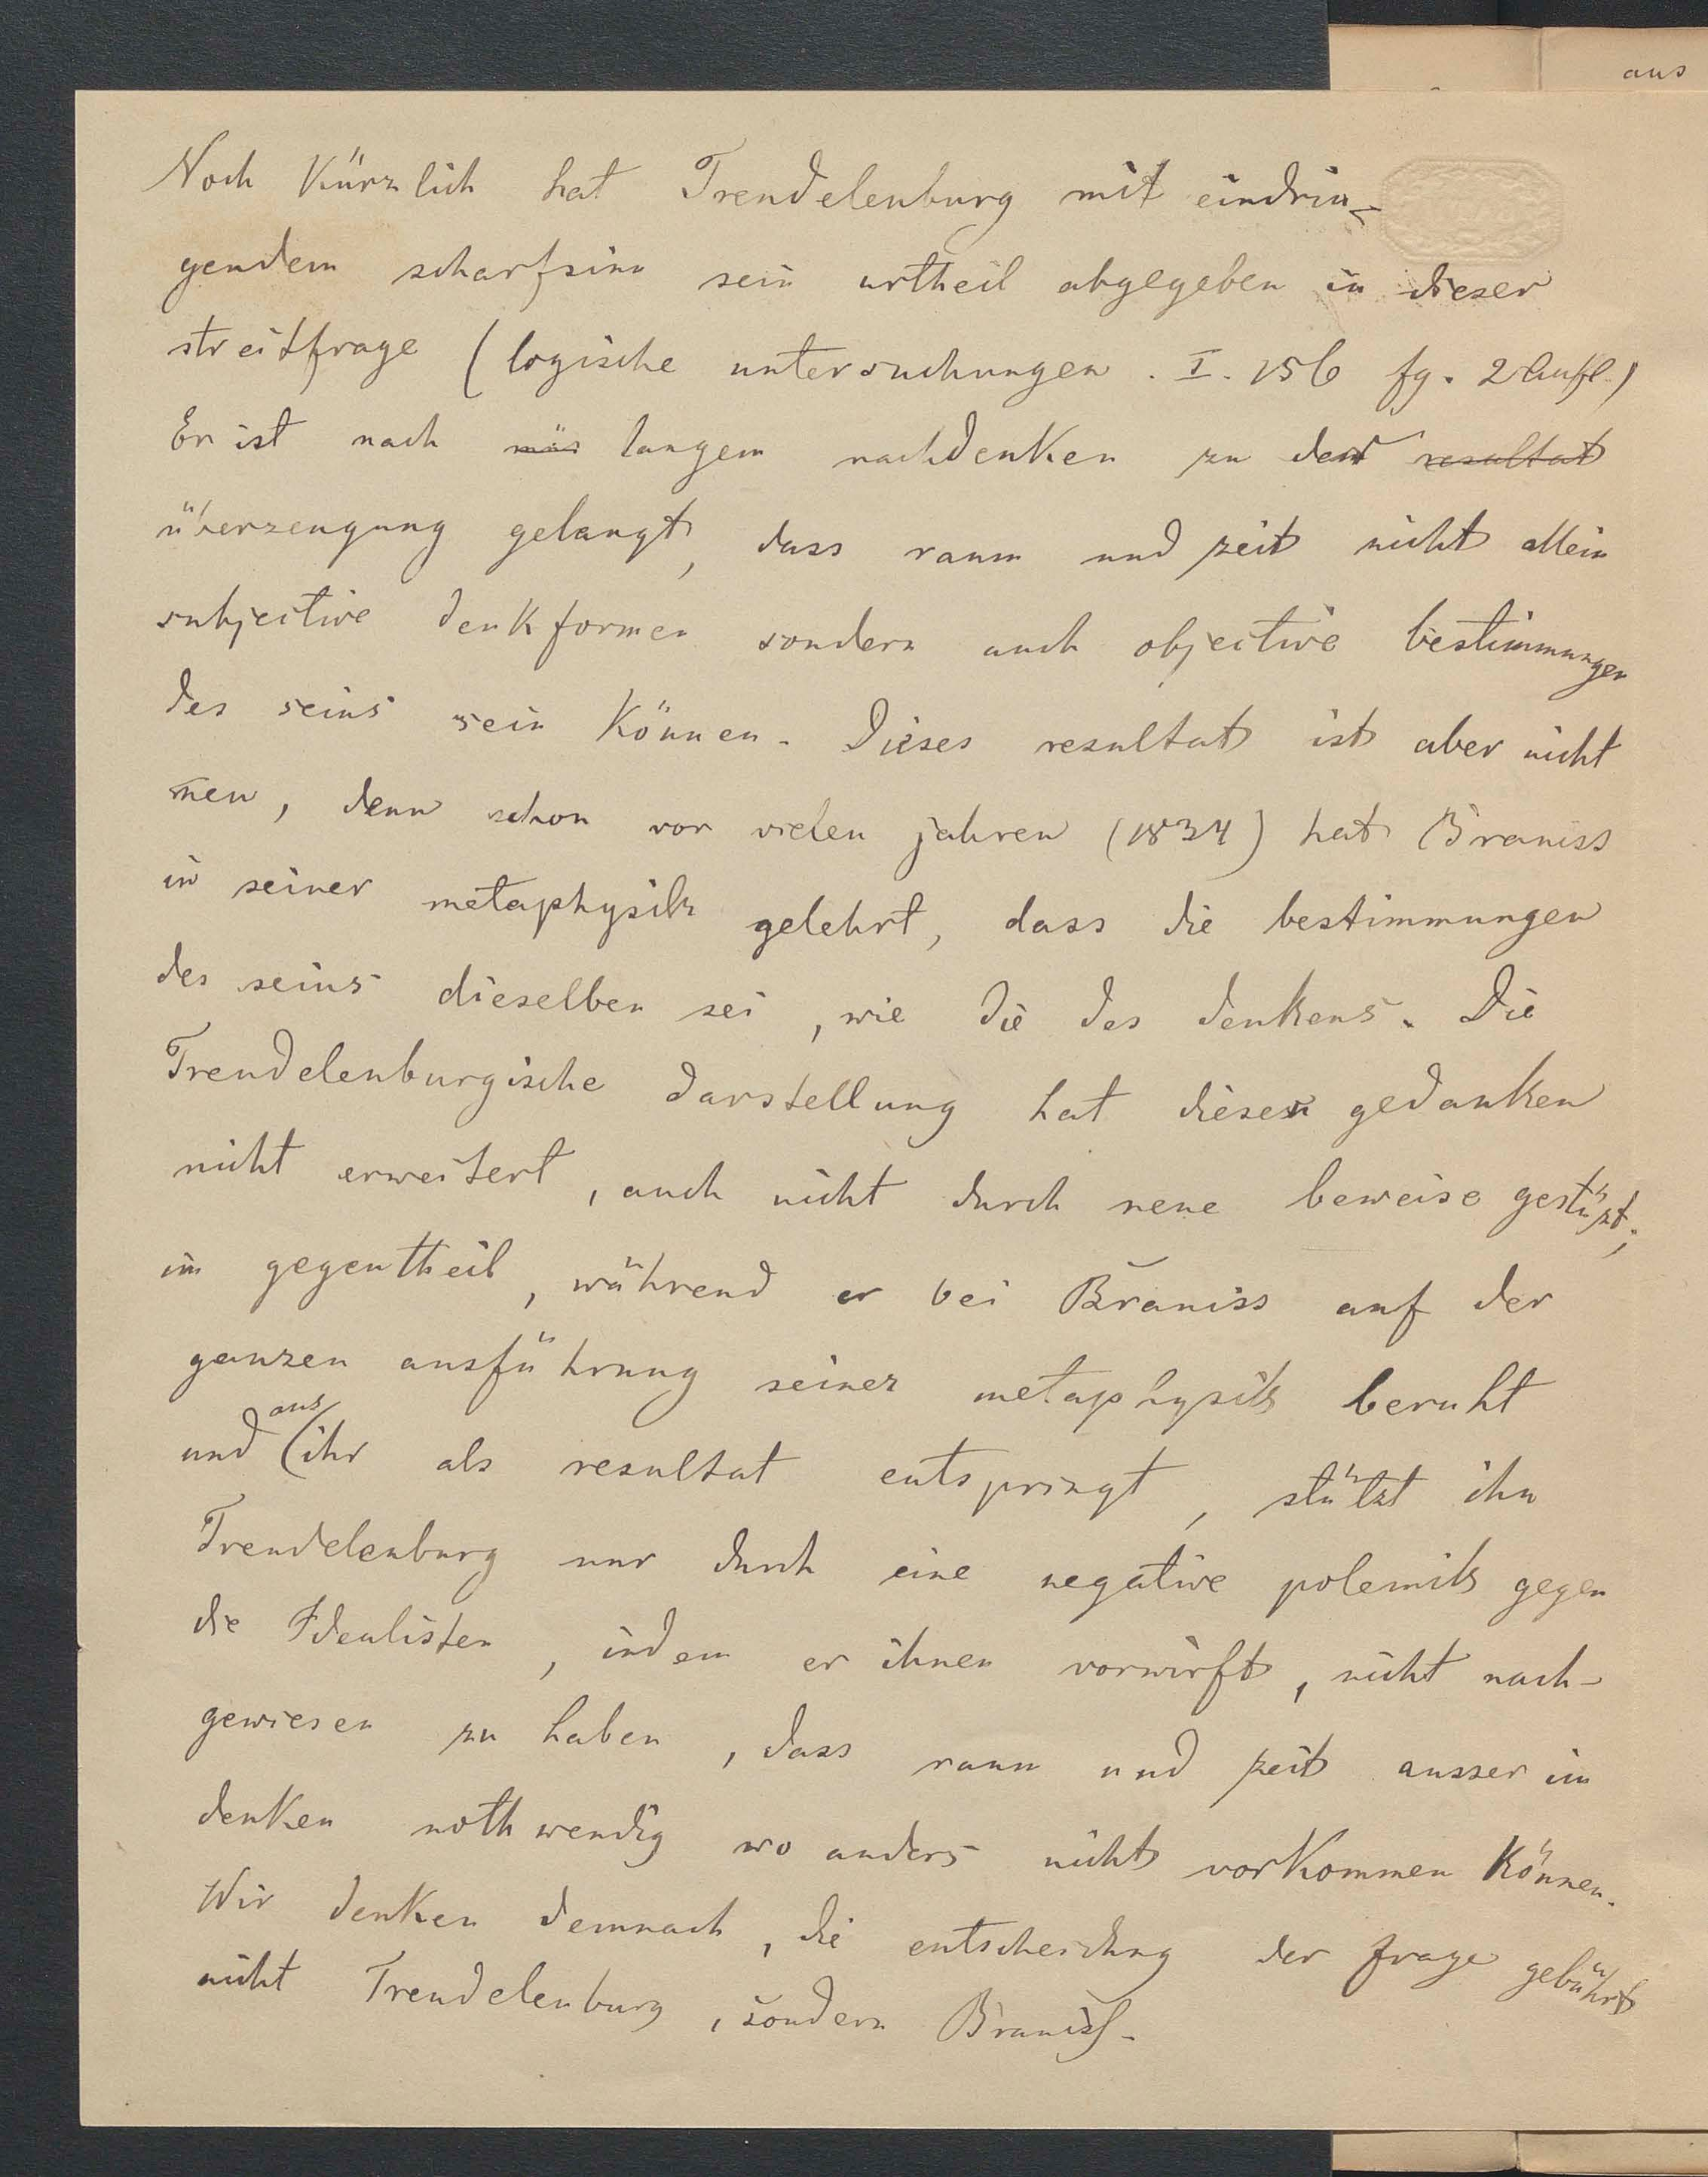 aus
Noch Kürzlich hat Trendelenburg mit eindrin-
gendem scharfsinn sein urtheil abgegeben in dieser
streitfrage (logische untersuchungen. I. 156 fg. 2 Aufl.)
Er ist nach langem nachdenken zu der resultat
überzeugung gelangt, dass raum und zeit nicht allein
subjective denkformen sondern auch objective bestimmungen
des seins sein können. Dieses resultat ist aber nicht
neu, denn schon vor vielen jahren (1834) hat Braniss
in seiner metaphysik gelehrt, dass die bestimmungen
des seins dieselben sei, wie die des denkens. Die
Trendelenburgische darstellung hat diesen gedanken
nicht erweitert, auch nicht durch neue beweise gestüzt;
im gegentheil, während er bei Braniss auf der
ganzen ausführung seiner metaphysik beruht
und aus ihr als resultat entspringt, stützt ihn
Trendelenburg nur durch eine negative polemik gegen
die Idealisten, indem er ihnen vorwirft, nicht nach-
gewiesen zu haben, dass raum und zeit ausser im
denken nothwendig wo anders nicht vorkommen können.
Wir denken demnach, die entscheidung der frage gebührt
nicht Trendelenburg, sondern Braniß.